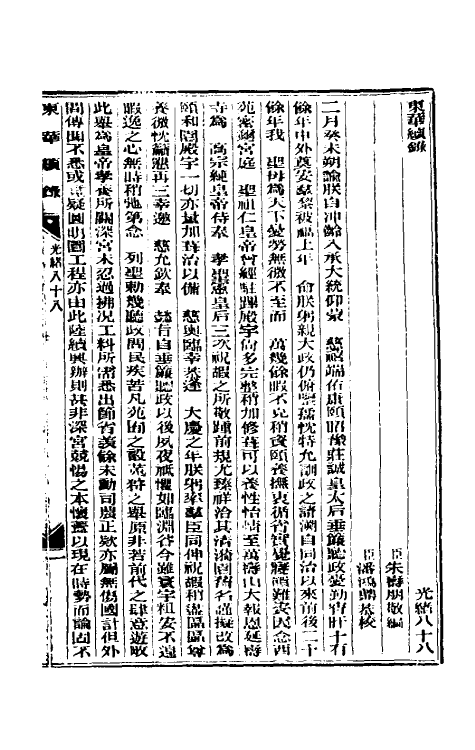 東華續錄
光緒八十八
臣朱壽朋敬編
臣潘鴻鼎恭校
二月癸未朔諭朕自沖齡入承大統仰蒙 慈禧端佑康頤昭豫莊誠皇太后垂簾聽政憂勤宵旰十有
餘年中外奠安羣黎被福上年 命朕躬親大政仍俯鑒孺忱特允訓政之請溯自同治以來前後二十
餘年我 聖母爲天下憂勞無微不至而 萬幾餘暇不克稍資頤養撫衷循省實覺寢饋難安因念西
苑密邇宮庭 聖祖仁皇帝曾經駐蹕殿宇尚多完整稍加修葺可以養性怡情至萬壽山大報恩延壽
寺爲 高宗純皇帝侍奉 孝聖憲皇后三次祝嘏之所敬踵前規尤臻祥洽其清漪園舊名謹擬改爲
頤和園殿宇一切亦量加葺治以備 慈輿臨幸恭逢 大慶之年朕躬率羣臣同伸祝嘏稍盡區區尊
養微忱籲懇再三幸邀 慈允欽奉 懿旨自垂簾聽政以後夙夜祗懼如臨淵谷今雖寰宇粗安不遑
暇逸之心無時稍弛第念 列聖勅幾聽政問民疾苦凡苑囿之設蒐狩之舉原非若前代之肆意遊畋
此舉爲皇帝孝養所關深宮未忍過拂況工料所需悉出節省羨餘未動司農正款亦屬無傷國計但外
間傳聞不悉或竟疑圓明園工程亦由此陸續興辦則甚非深宮兢惕之本懷蓋以現在時勢而論固不
東華續錄
光緒八十八